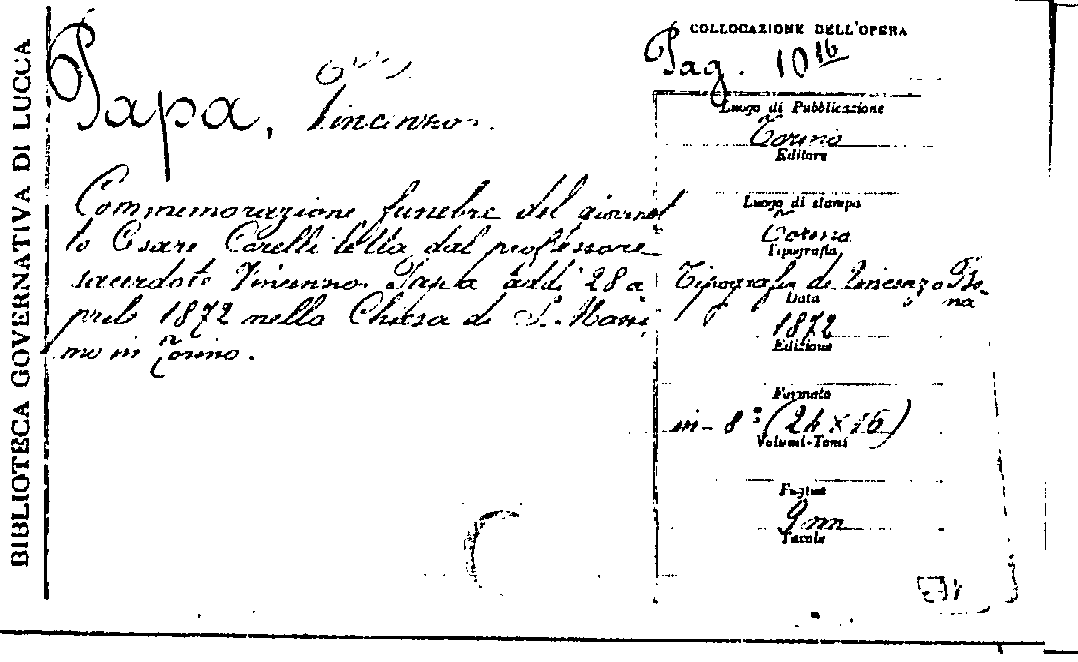 BIBLIOTECA GOVERNATIVA DI LUCCA
Papa, Vincenzo.
Commemorazione funebre del giovinet
to Cesare Corelli letta dal professore
sacerdote Vincenzo Papa addì 28 a
prile 1872 nella Chiesa di S. Massi
mo in Torino.
COLLOCAZIONE DELL'OPERA
Pag. 10 16
Luogo di Pubblicazione
Torino
Editore
Luogo di stampa
Torino
Tipografia
Tipografia di Vincenzo Bo-
na
Data
1872
Edizione
Formato
in-8° (24 × 16)
Volumi-Tomi
Pagine
9 nn
Tavole